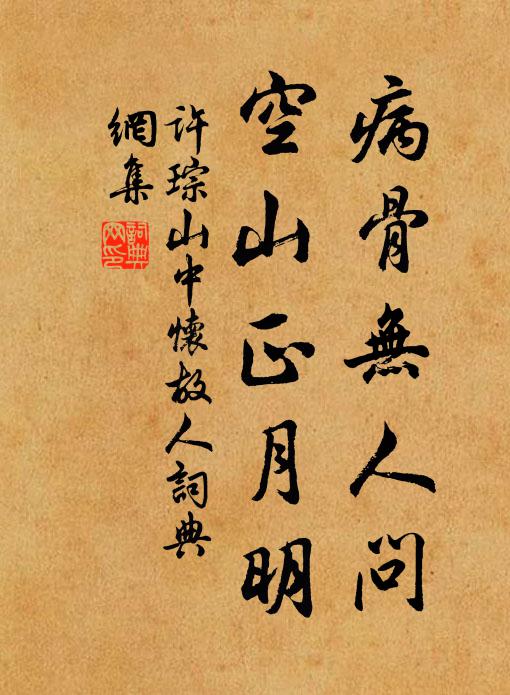 病骨無人問
空山正月明
許琮山中懷故人詞典
網集
詞典
网印